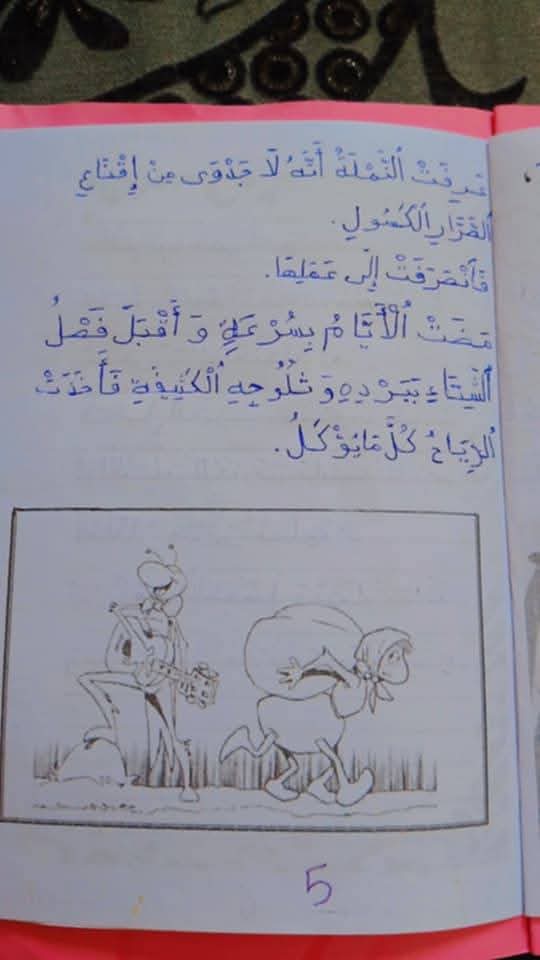 عَرِفَتْ ٱلنَّمْلَةُ أَنَّهُ لَا جَدْوَى مِنْ إِقْنَاعِ
ٱلصَّرَّارِ ٱلْكَسُولِ.
فَٱنْصَرَفَتْ إِلَى عَمَلِهَا.
مَضَتْ ٱلْأَيَّامُ بِسُرْعَةٍ وَ أَقْبَلَ فَصْلُ
ٱلشِّتَاءِ بِبَرْدِهِ وَ ثُلُوجِهِ ٱلْكَثِيفَةِ فَأَخَذَتْ
ٱلرِّيَاحُ كُلَّ مَا يُؤْكَلُ.
5